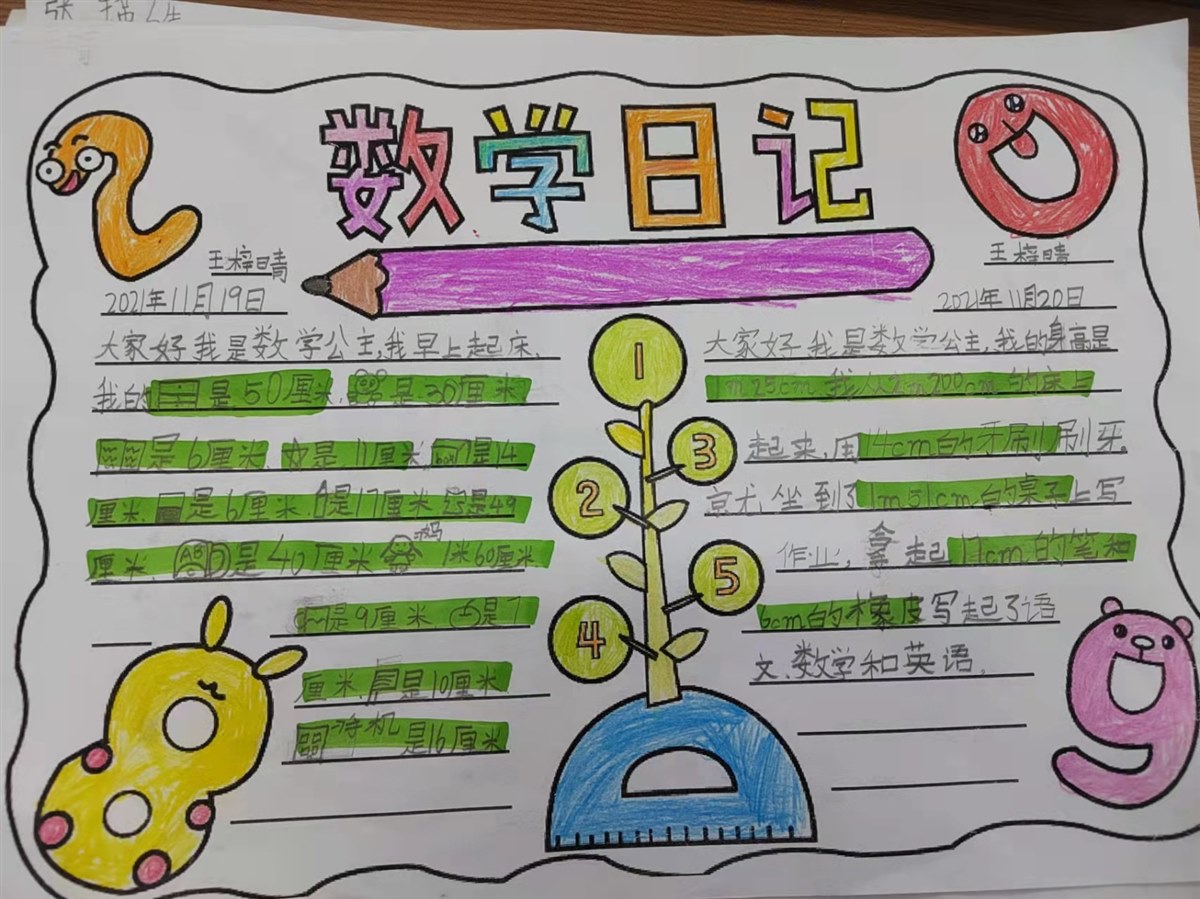 数学日记
王梓晴
2021年11月19日
大家好我是数学公主,我早上起床,
我的 是50厘米, 是30厘米
是6厘米, 是11厘米, 是14
厘米, 是6厘米, 是17厘米 是49
厘米, 是40厘米 妈 1米60厘米.
是9厘米 是7
厘米, 是10厘米
是16厘米
1
3
2
5
4
王梓晴
2021年11月20日
大家好我是数学公主,我的身高是
1m25cm,我从2m200cm的床上
起来,用14cm的牙刷刷牙。
京尤,坐到了1m31cm的桌子上写
作业,拿起17cm的笔和
6cm的橡皮写起了语
文、数学和英语.